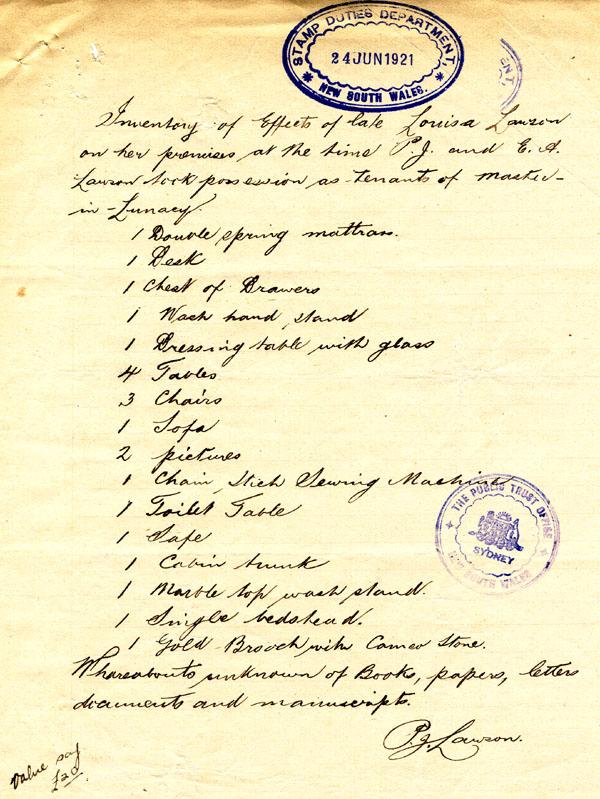 STAMP DUTIES DEPARTMENT,
24 JUN 1921
NEW SOUTH WALES.
ENT,
Inventory of Effects of late Louisa Lawson
on her premises at the time P.J. and E. A.
Lawson took possession as tenants of Master-
in-Lunacy.
1 Double spring mattrass.
1 Desk
1 Chest of Drawers
1 Wash hand stand
1 Dressing table with glass
4 Tables
3 Chairs
1 Sofa
2 pictures
1 Chain Stich Sewing Machine
1 Toilet Table
1 Safe
1 Cabin trunk
1 Marble top wash stand.
1 Single bedshead.
1 Gold Brooch with Cameo Stone.
THE PUBLIC TRUST OFFICE
SYDNEY
NEW SOUTH WALES
Whereabouts unknown of Books, papers, letters
documents and manuscripts.
P.J. Lawson.
Value say
£20.